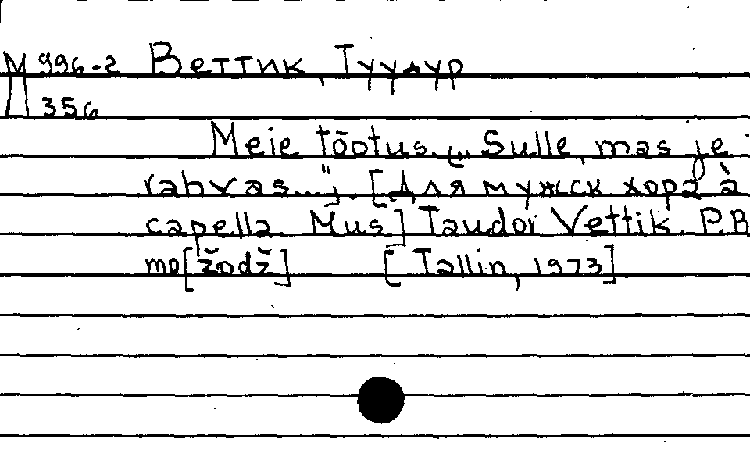 М 996-2 Веттик, Туудур
П 356
Meie tõotus. („Sulle, mas je
rahvas..."). [Для мужск хора à
capella. Mus] Taudor Vettik. P.B
mo[žodž] [Tallin, 1973]